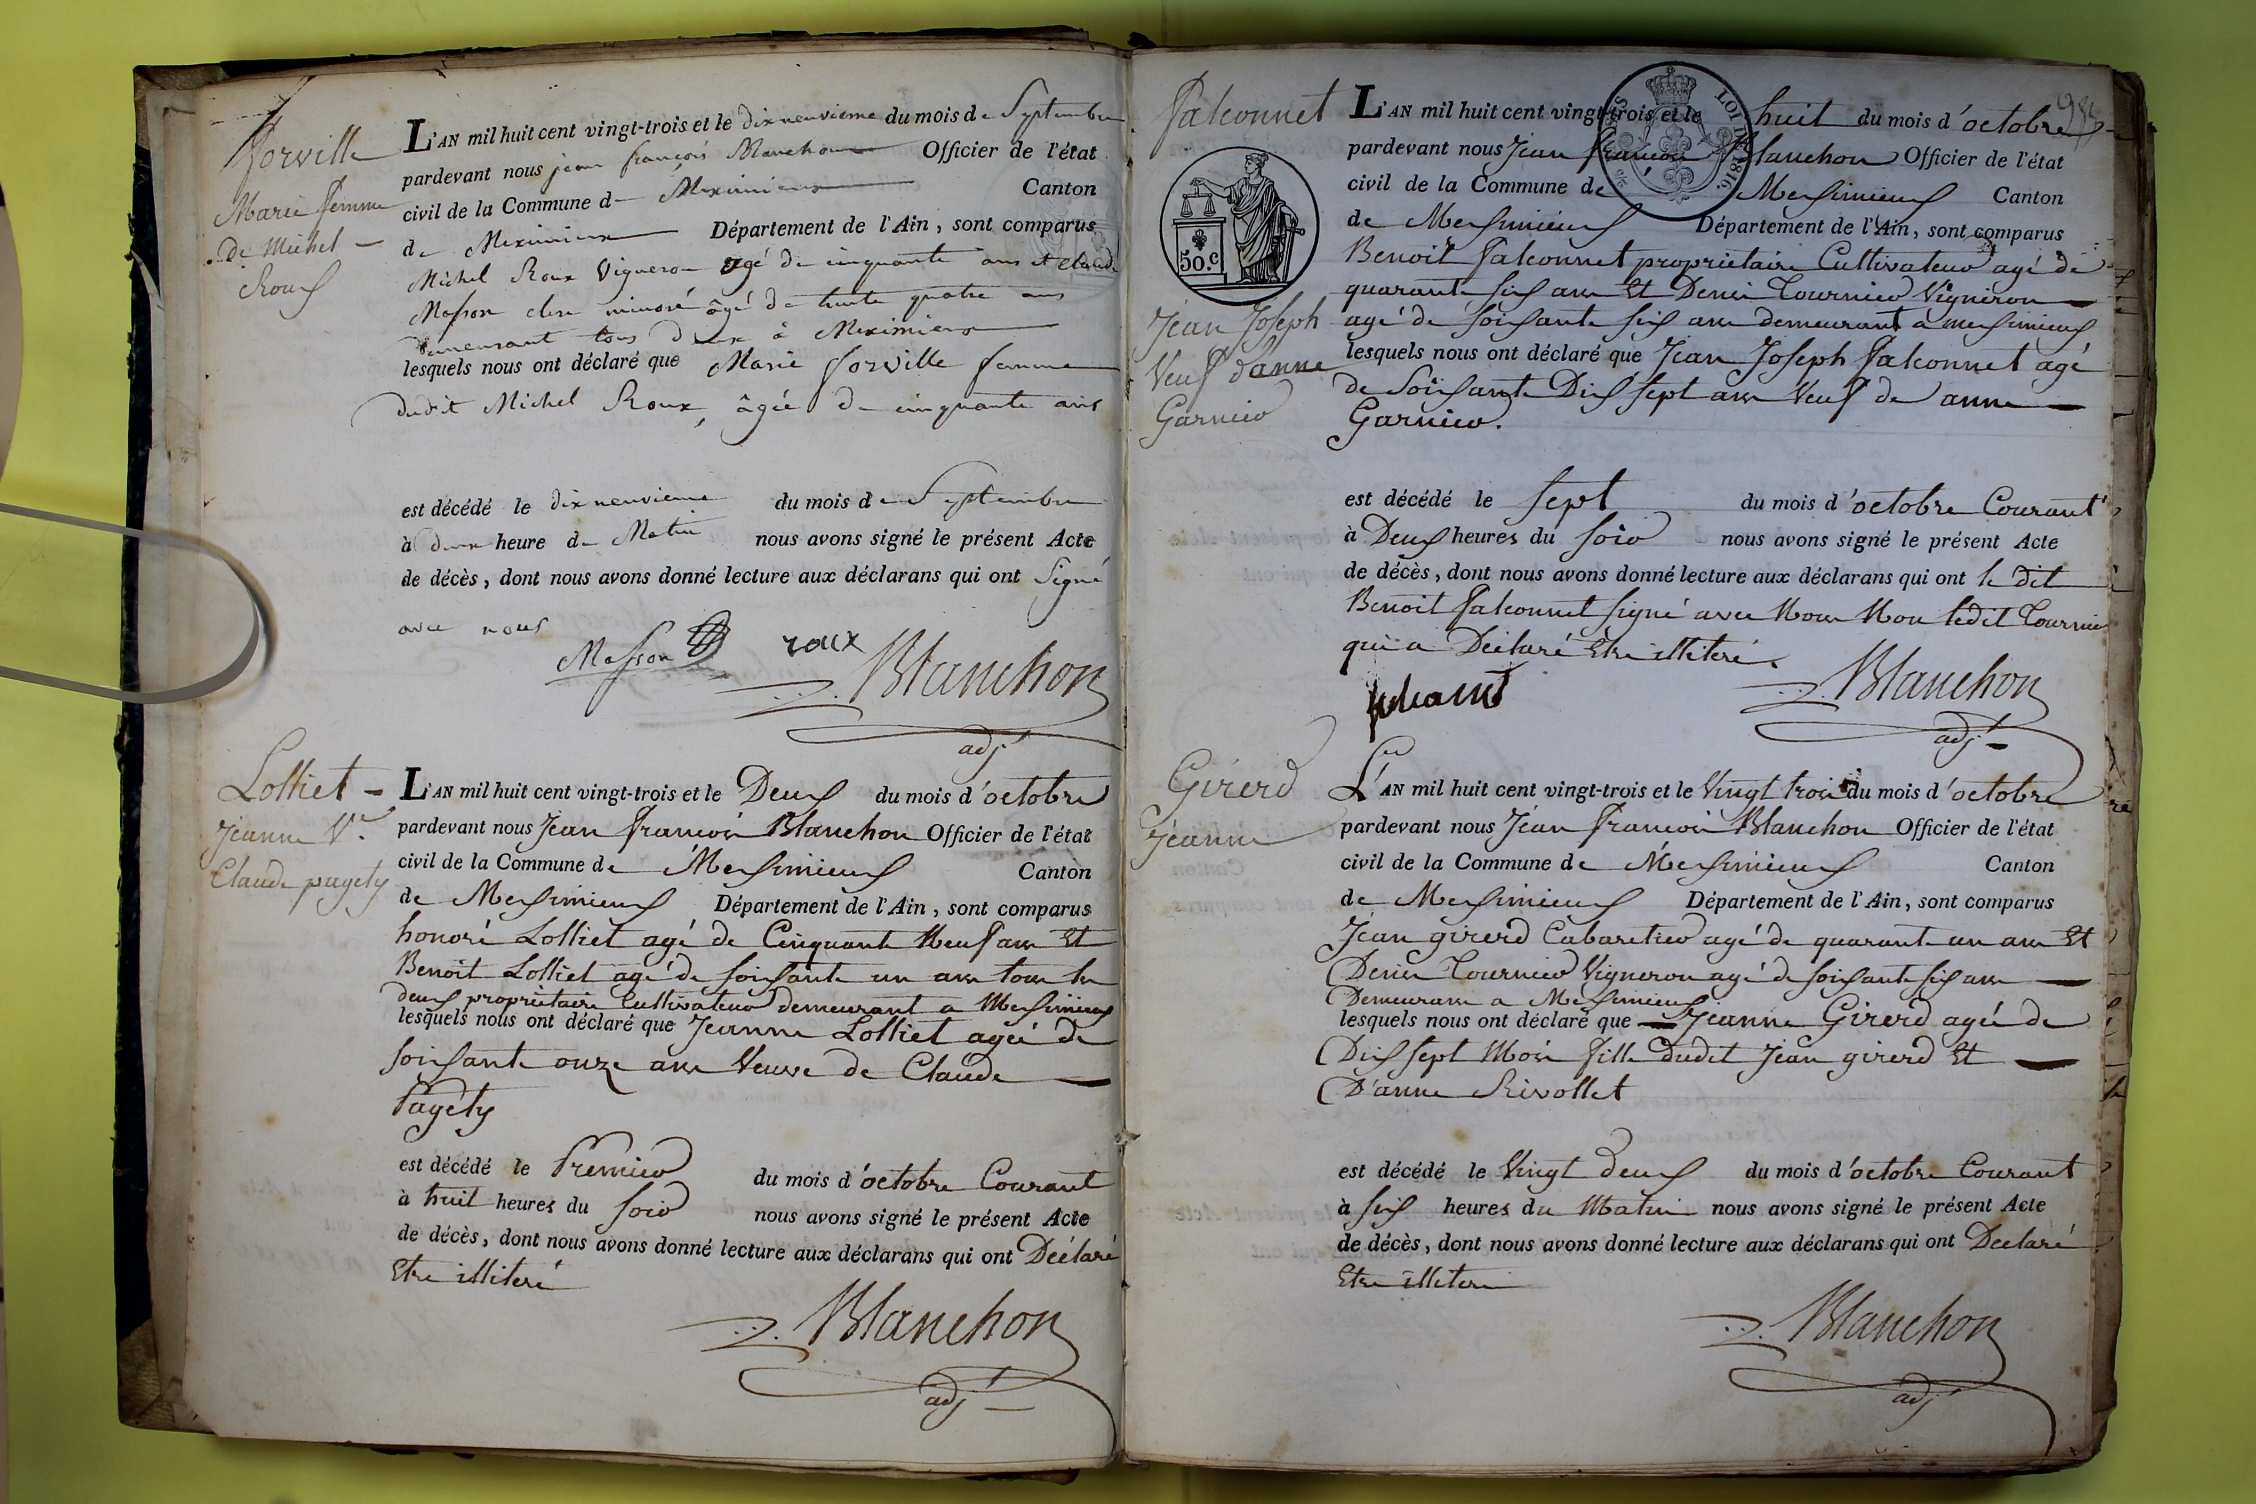 forville
Marie femme
de Michel
Roux
L'AN mil huit cent vingt-trois et le dix neuvieme du mois de Septembre
pardevant nous jean françois Blanchon Officier de l'état
civil de la Commune de Meximieux Canton
de Meximieux Département de l'Ain, sont comparus
Michel Roux Vigneron agé de cinquante ans et claude
Masson clerc minoré âgé de trente quatre ans
demeurant tous deux à Meximieux
lesquels nous ont déclaré que Marie forville femme
dudit Michel Roux, âgée de cinquante ans
est décédé le dix neuvieme du mois de Septembre
à deux heure de Matin nous avons signé le présent Acte
de décès, dont nous avons donné lecture aux déclarans qui ont Signé
avec nous
Masson roux Blanchon
adj.t
Lolliet
Jeanne V.e
Claude pagety
L'AN mil huit cent vingt-trois et le Deux du mois d'octobre
pardevant nous Jean françois Blanchon Officier de l'état
civil de la Commune de Meximieux Canton
de Meximieux Département de l'Ain, sont comparus
honoré Lolliet agé de Cinquante Neuf ans Et
Benoit Lolliet agé de soixante un ans tous les
deux propriétaire Cultivateur demeurant a Meximieux
lesquels nous ont déclaré que Jeanne Lolliet agée de
soixante onze ans Veuve de Claude
Pagety
est décédé le Premier du mois d'octobre Courant
à huit heures du soir nous avons signé le présent Acte
de décès, dont nous avons donné lecture aux déclarans qui ont Déclaré
Etre illiteré
Blanchon
adj.t
falconnet
50.c
Jean Joseph
Veuf d'anne
Garnier
LOI DE 1816.
L'AN mil huit cent vingt-trois et le huit du mois d'octobre
pardevant nous Jean françois Blanchon Officier de l'état
civil de la Commune de Meximieux Canton
de Meximieux Département de l'Ain, sont comparus
Benoit falconnet propriétaire Cultivateur agé de
quarante six ans Et Denis Tournier Vigniron
agé de soixante six ans demeurant a meximieux
lesquels nous ont déclaré que Jean Joseph falconnet agé
de soixante Dix sept ans Veuf de anne
Garnier.
est décédé le sept du mois d'octobre Courant
à Deux heures du soir nous avons signé le présent Acte
de décès, dont nous avons donné lecture aux déclarans qui ont le dit
Benoit falconnet signé avec Nous Non ledit Tournier
qui a Déclaré Etre illiteré.
Blanchon
adj.t
Girerd
Jeanne
L'AN mil huit cent vingt-trois et le Vingt trois du mois d'octobre
pardevant nous Jean françois Blanchon Officier de l'état
civil de la Commune de Meximieux Canton
de Meximieux Département de l'Ain, sont comparus
Jean girerd Cabaretier agé de quarante un ans Et
Denis Tournier Vigneron agé de soixante six ans
Demeurans a Meximieux
lesquels nous ont déclaré que Jeanne Girerd agée de
Dix sept Mois fille dudit Jean girerd Et
D'anne Rivollet
est décédé le Vingt deux du mois d'octobre Courant
à six heures du Matin nous avons signé le présent Acte
de décès, dont nous avons donné lecture aux déclarans qui ont Déclaré
Etre illiteré
Blanchon
adj.t